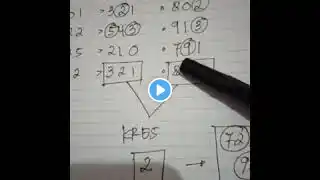 01 > 321 • 802
2 > 543 • 913
5 > 210 • 791
2 > 321 • 8
2 → 72
9